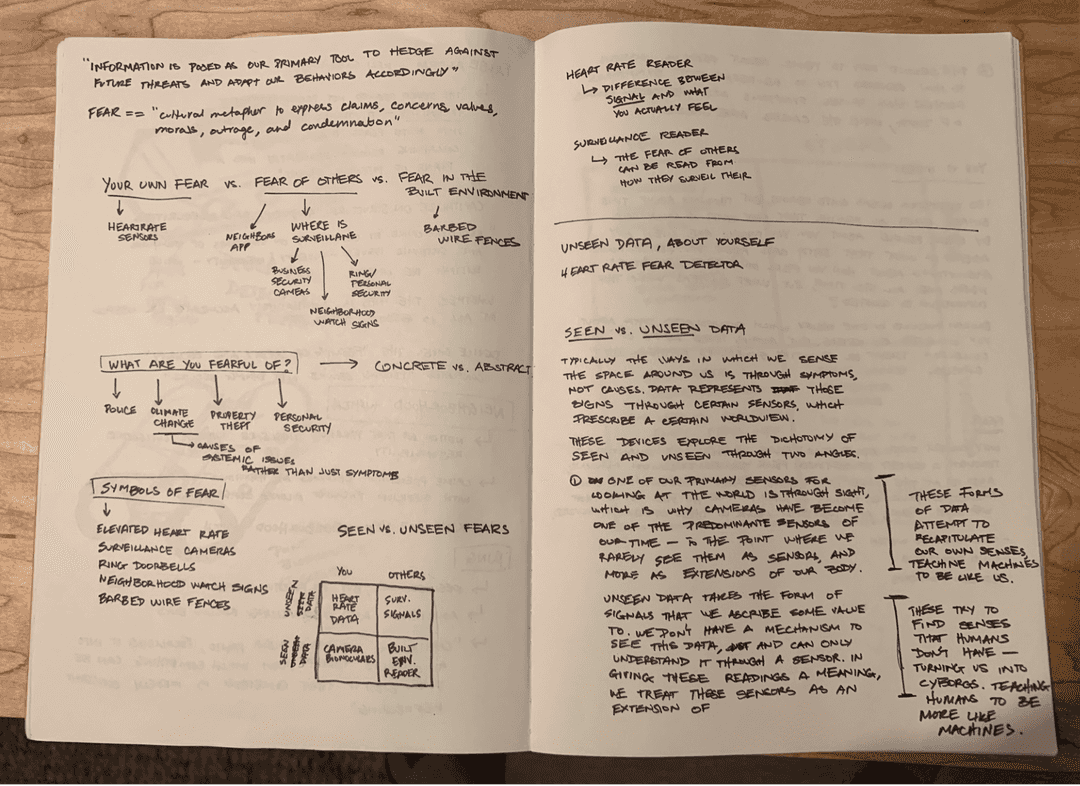 "INFORMATION IS POSED AS OUR PRIMARY TOOL TO HEDGE AGAINST
FUTURE THREATS AND ADAPT OUR BEHAVIORS ACCORDINGLY"
FEAR == "cultural metapher to express claims, concerns, values,
morals, outrage, and condemnation"
YOUR OWN FEAR vs. FEAR OF OTHERS vs. FEAR IN THE
BUILT ENVIRONMENT
HEARTRATE
SENSORS
NEIGHBORS
APP
WHERE IS
SURVEILLANE
BARBED
WIRE FENCES
BUSINESS
SECURITY
CAMEAS
RING/
PERSONAL
SECURITY
NEIGHBORHOOD
WATCH SIGNS
WHAT ARE YOU FEARFUL OF? → CONCRETE vs. ABSTRACT
POLICE
CLIMATE
CHANGE
PROPERTY
THEFT
PERSONAL
SECURITY
→ CAUSES OF
SYSTEMIC ISSUES
RATHER THAN JUST SYMPTOMS
SYMBOLS OF FEAR
ELEVATED HEART RATE
SURVEILLANCE CAMERAS
RING DOORBELLS
NEIGHBORHOOD WATCH SIGNS
BARBED WIRE FENCES
SEEN vs. UNSEEN FEARS
YOU OTHERS
UNSEEN
DATA
HEART
RATE
DATA
SURV.
SIGNALS
SEEN
DATA
CAMERA
BIONOCULARS
BUILT
ENV.
READER
HEART RATE READER
↳ DIFFERENCE BETWEEN
SIGNAL AND WHAT
YOU ACTUALLY FEEL
SURVEILLANCE READER
↳ THE FEAR OF OTHERS
CAN BE READ FROM
HOW THEY SURVEIL THEIR
UNSEEN DATA, ABOUT YOURSELF
HEART RATE FEAR DETECTOR
SEEN vs. UNSEEN DATA
TYPICALLY THE WAYS IN WHICH WE SENSE
THE SPACE AROUND US IS THROUGH SYMPTOMS,
NOT CAUSES. DATA REPRESENTS THOSE
SIGNS THROUGH CERTAIN SENSORS, WHICH
PRESCRIBE A CERTAIN WORLDVIEW.
THESE DEVICES EXPLORE THE DICHOTOMY OF
SEEN AND UNSEEN THROUGH TWO ANGLES.
① ONE OF OUR PRIMARY SENSORS FOR
LOOKING AT THE WORLD IS THROUGH SIGHT,
WHICH IS WHY CAMERAS HAVE BECOME
ONE OF THE PREDOMINANTE SENSORS OF
OUR TIME — TO THE POINT WHERE WE
RARELY SEE THEM AS SENSORS, AND
MORE AS EXTENSIONS OF OUR BODY.
THESE FORMS
OF DATA
ATTEMPT TO
RECAPITULATE
OUR OWN SENSES,
TEACHINE MACHINES
TO BE LIKE US.
UNSEEN DATA TAKES THE FORM OF
SIGNALS THAT WE ASCRIBE SOME VALUE
TO. WE DON'T HAVE A MECHANISM TO
SEE THIS DATA, AND CAN ONLY
UNDERSTAND IT THROUGH A SENSOR. IN
GIVING THESE READINGS A MEANING,
WE TREAT THESE SENSORS AS AN
EXTENSION OF
THESE TRY TO
FIND SENSES
THAT HUMANS
DON'T HAVE —
TURNING US INTO
CYBORGS. TEACHING
HUMANS TO BE
MORE LIKE
MACHINES.